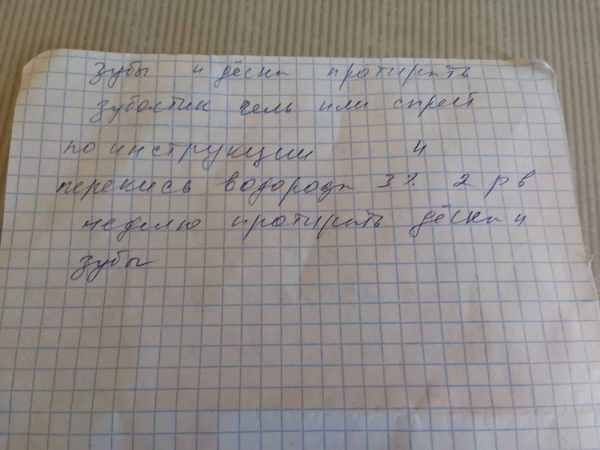 Зубы и дёсна протирать
зубастик гель или спрей
по инструкции и
перекись водорода 3% 2 р в
неделю протирать дёсна и
зубы